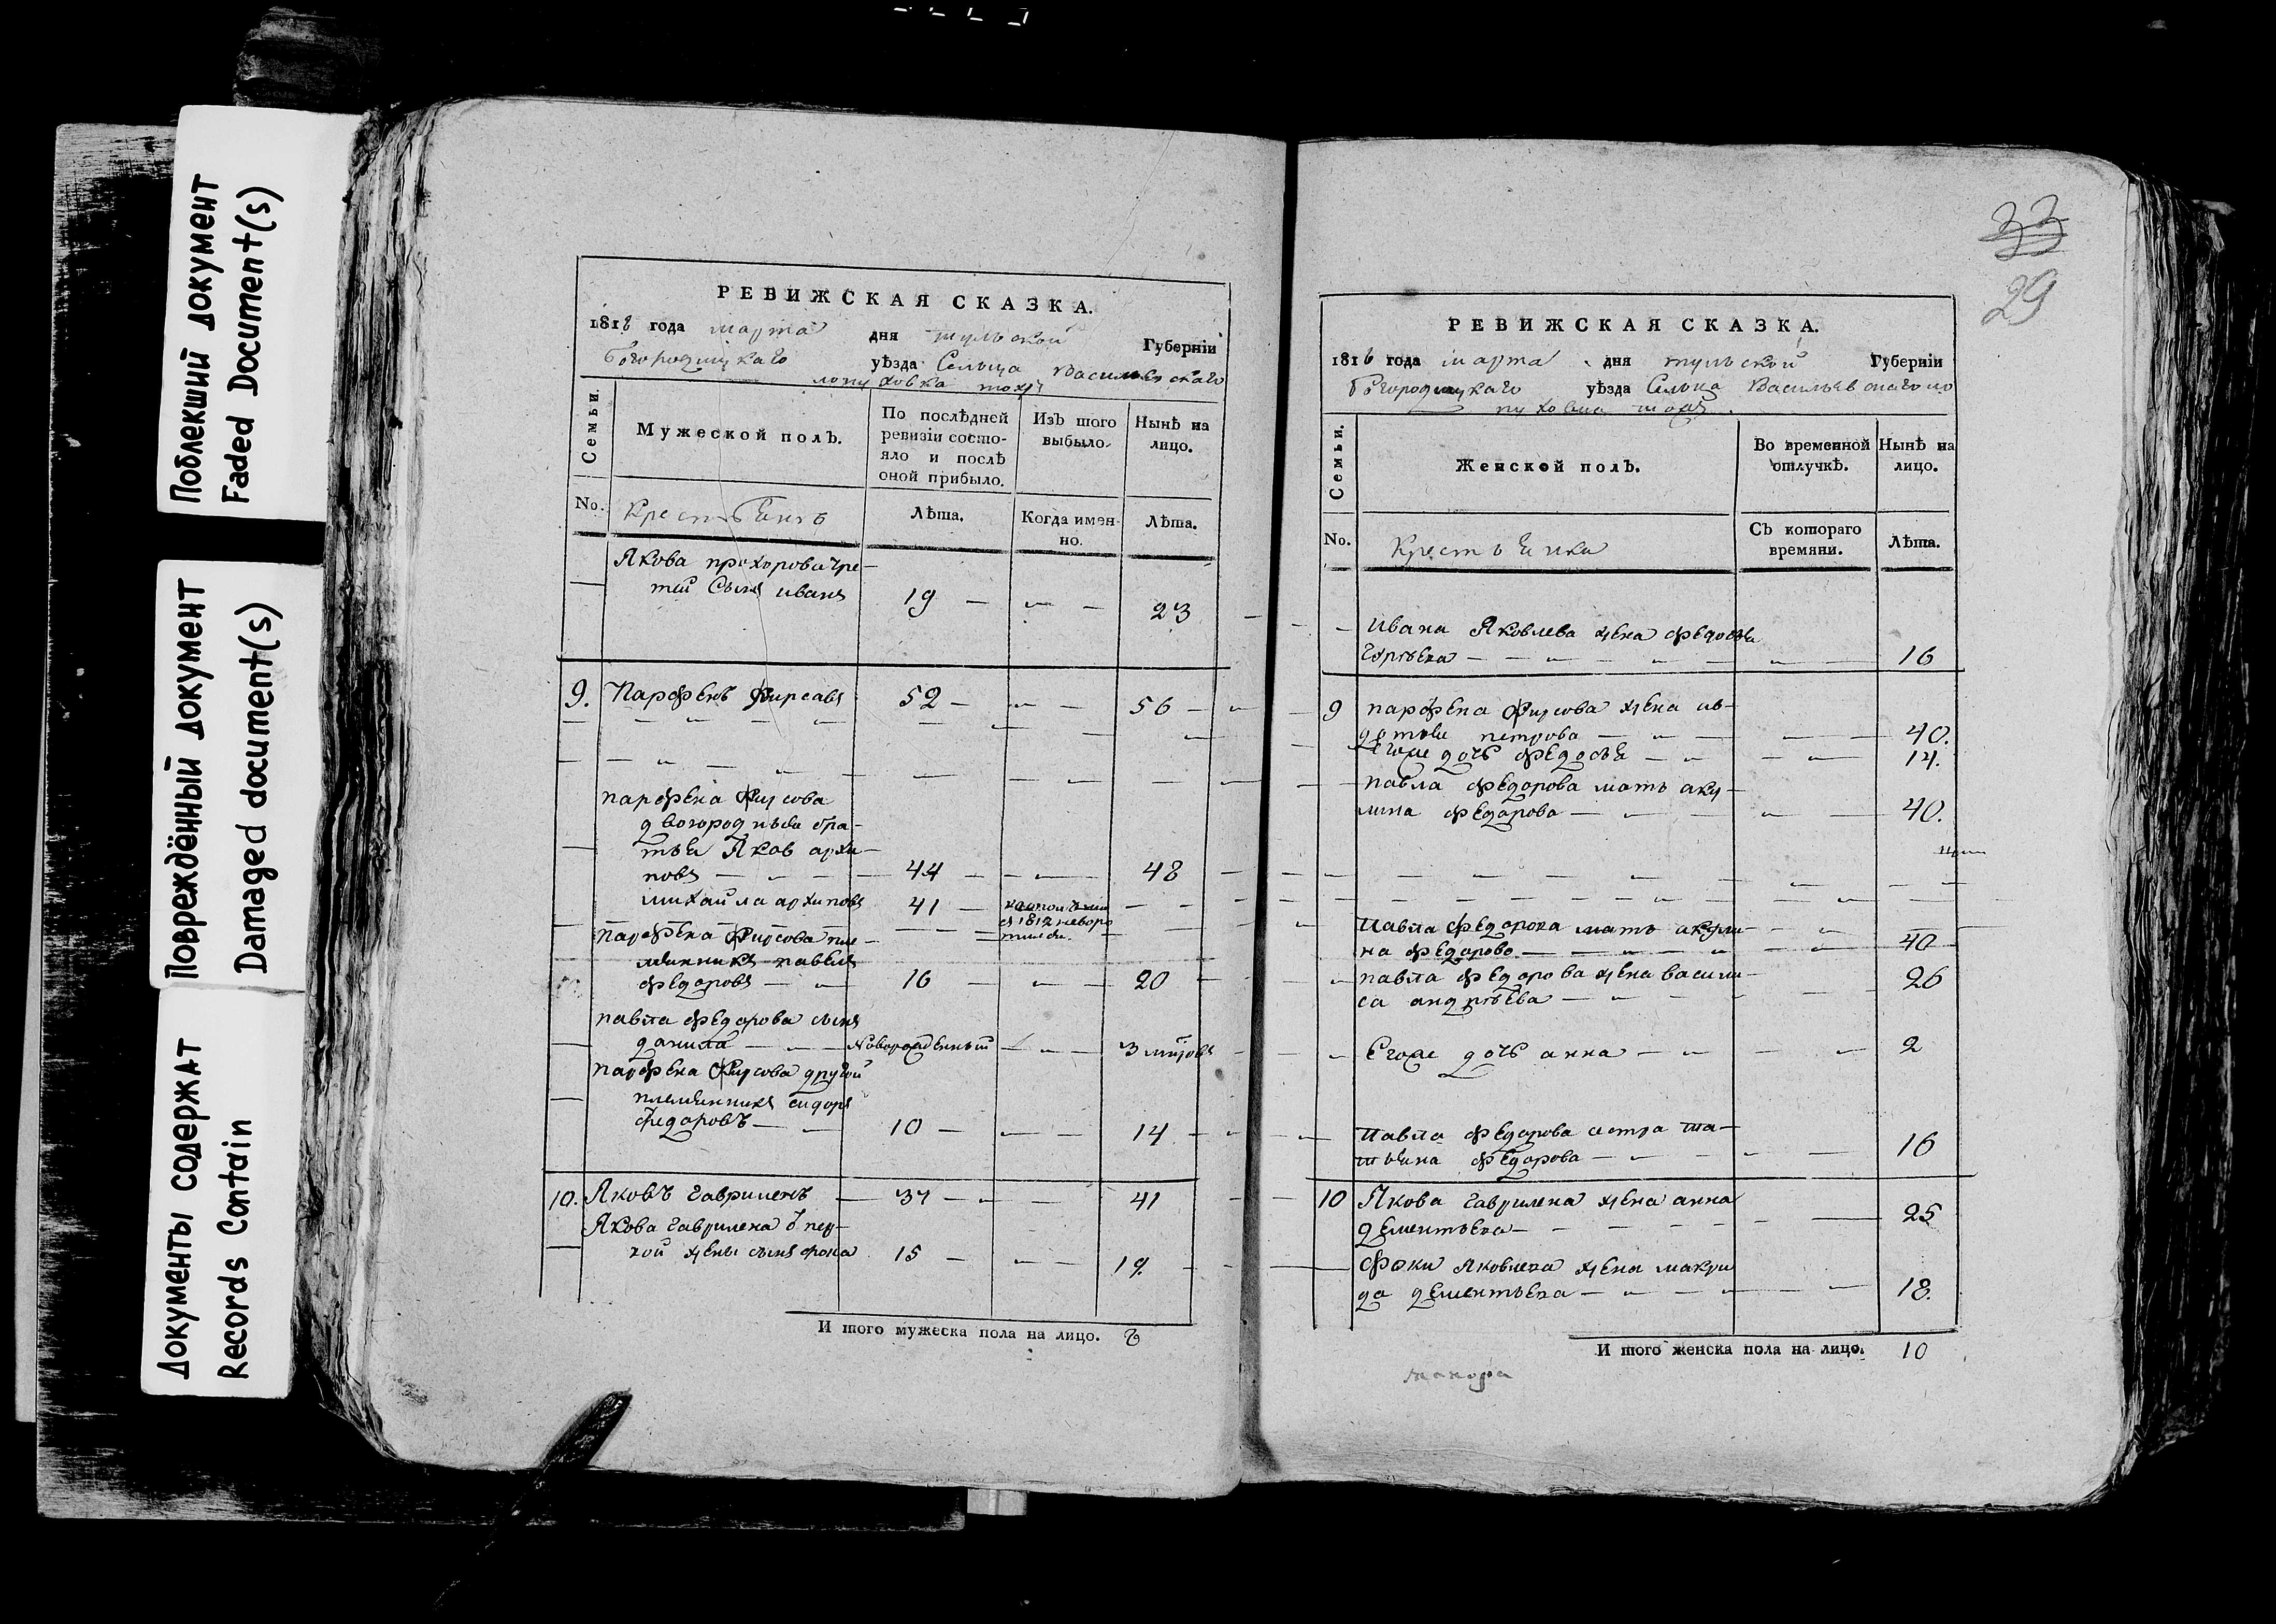 Поблекший документ
Faded Document(s)
Повреждённый документ
Damaged document(s)
Документы содержат
Records Contain
РЕВИЖСКАЯ СКАЗКА.
1816 года марта дня тульской Губерніи
богородицкаго уѣзда Сельца Васильевскаго
лопуховка тожъ
Семьи. Мужеской полъ. По послѣдней ревизіи состояло и послѣ оной прибыло. Изъ того выбыло. Нынѣ на лицо.
No. Крестьянъ Лѣта. Когда именно. Лѣта.
Якова прохорова тре-
тей Сынъ иванъ 19 23
9. Парфенъ Фирсавъ 52 56
парфена Фирсова
двоюродныя бра-
тья Яков архи-
повъ 44 48
михайла архиповъ 41
1812 неворо
парфена Фирсова пле-
мянникъ павелъ
федоровъ 16 20
павла федорова сынъ
данила Новорожденный 3
парфена Фирсова другой
племянникъ сидоръ
федоровъ 10 14
10. Яковъ Гавриловъ 37 41
Якова Гаврилова б пер-
вой жены сынъ фока 15 19.
И того мужеска пола на лицо. 8
33
29
РЕВИЖСКАЯ СКАЗКА.
1816 года марта дня тульской Губерніи
богородицкаго уѣзда Сельца Васильевскаго ло
пуховка тожъ
Семьи. Женской полъ. Во временной отлучкѣ. Нынѣ на лицо.
No. Крестьянка Съ котораго времяни. Лѣта.
Ивана Яковлева жена федосья
16
9 парфена Фирсова жена ав-
дотья петрова 40.
Егоже дочь федосья 14.
павла федорова мать аку-
лина федорова 40.
павла федорова мать акули-
на федорова 40
павла федорова жена васили-
са андрѣева 26
Егоже дочь анна 2
павла федорова сестра та-
тьяна федорова 16
10 Якова Гаврилова жена анна
дементьева 25
Фоки Яковлева жена макри
да дементьева 18.
И того женска пола на лицо. 10